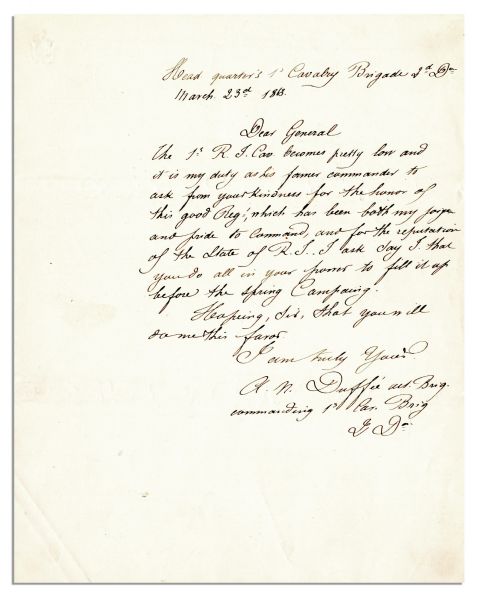 Head quarter's 1st Cavalry Brigade 2d Don
March. 23d 1863.
Dear General
The 1st R. I. Cav. becomes pretty low and
it is my duty as his former commander to
ask from your kindness for the honor of
this good Reg;, which has been both my
and pride to Command, and for the reputation
of the State of R. I. I ask Say I. that
you do all in your power to fill it up
before the spring Campaing.
Hopeing, Sir, that you will
do me this favor.
I am truly Your's
A. N. Duffié act. Brig.
commanding 1st Cav. Brig
2 Don